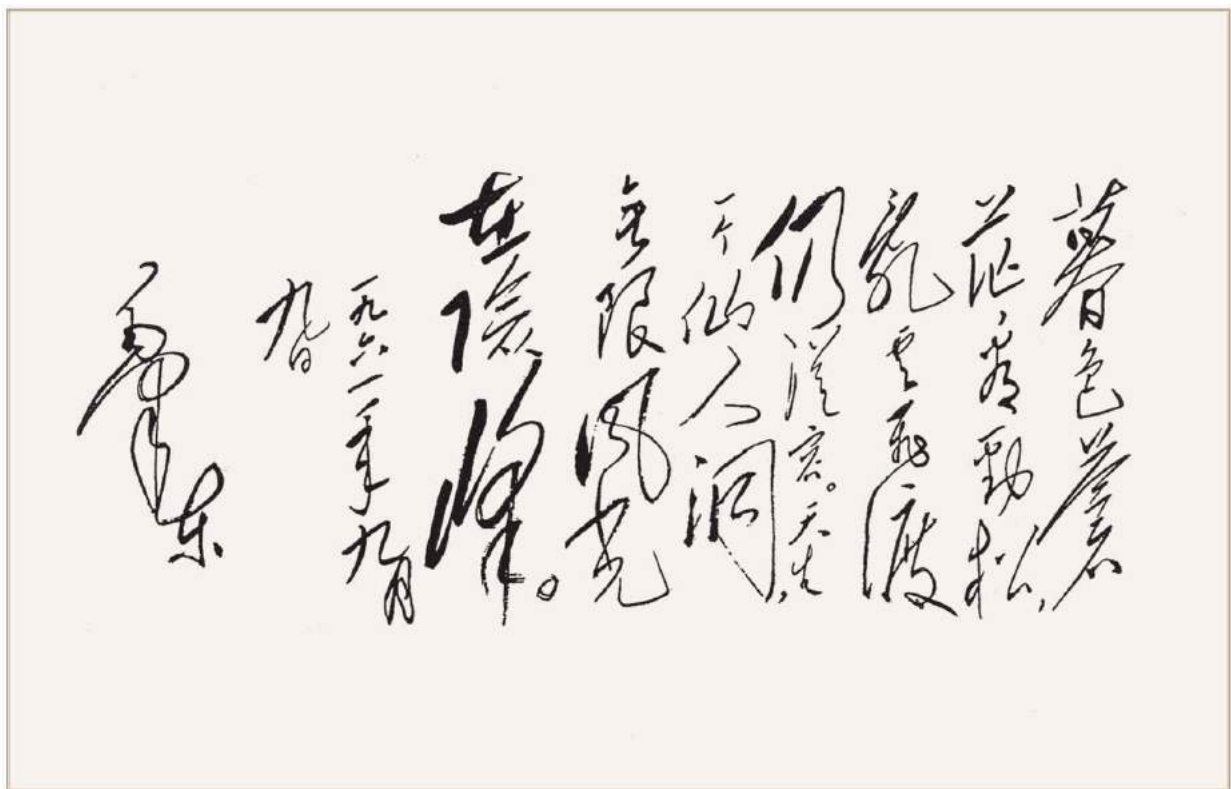 暮色苍
茫看劲松，
乱云飞渡
仍从容。天生
一个仙人洞，
无限风光
在险峰。
一九六一年九月
九日
毛泽东